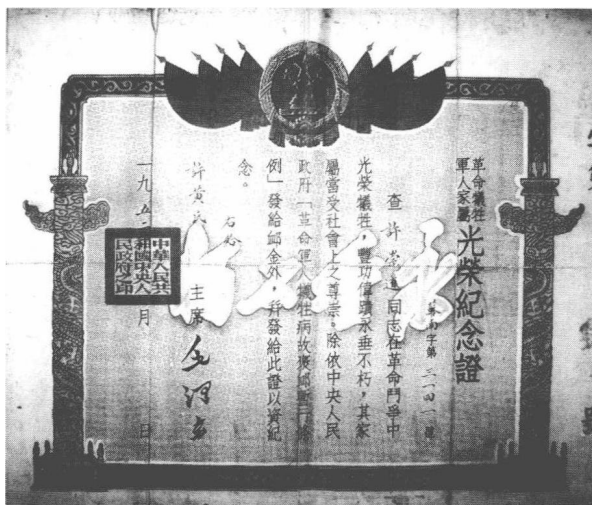 革命犧牲
軍人家屬
光榮紀念證
字第三一四一號
查許崇
同志在革命鬥爭中
光榮犧牲,豐功偉蹟永垂不朽,其家
屬當受社會上之尊崇。除依中央人民
政府「革命軍人犧牲病故褒卹暫行條
例」發給卹金外,幷發給此證以資紀
念。
右給
許黃氏
主席毛澤東
一九五
月
日
中華人民共
和國中央人
民政府之印